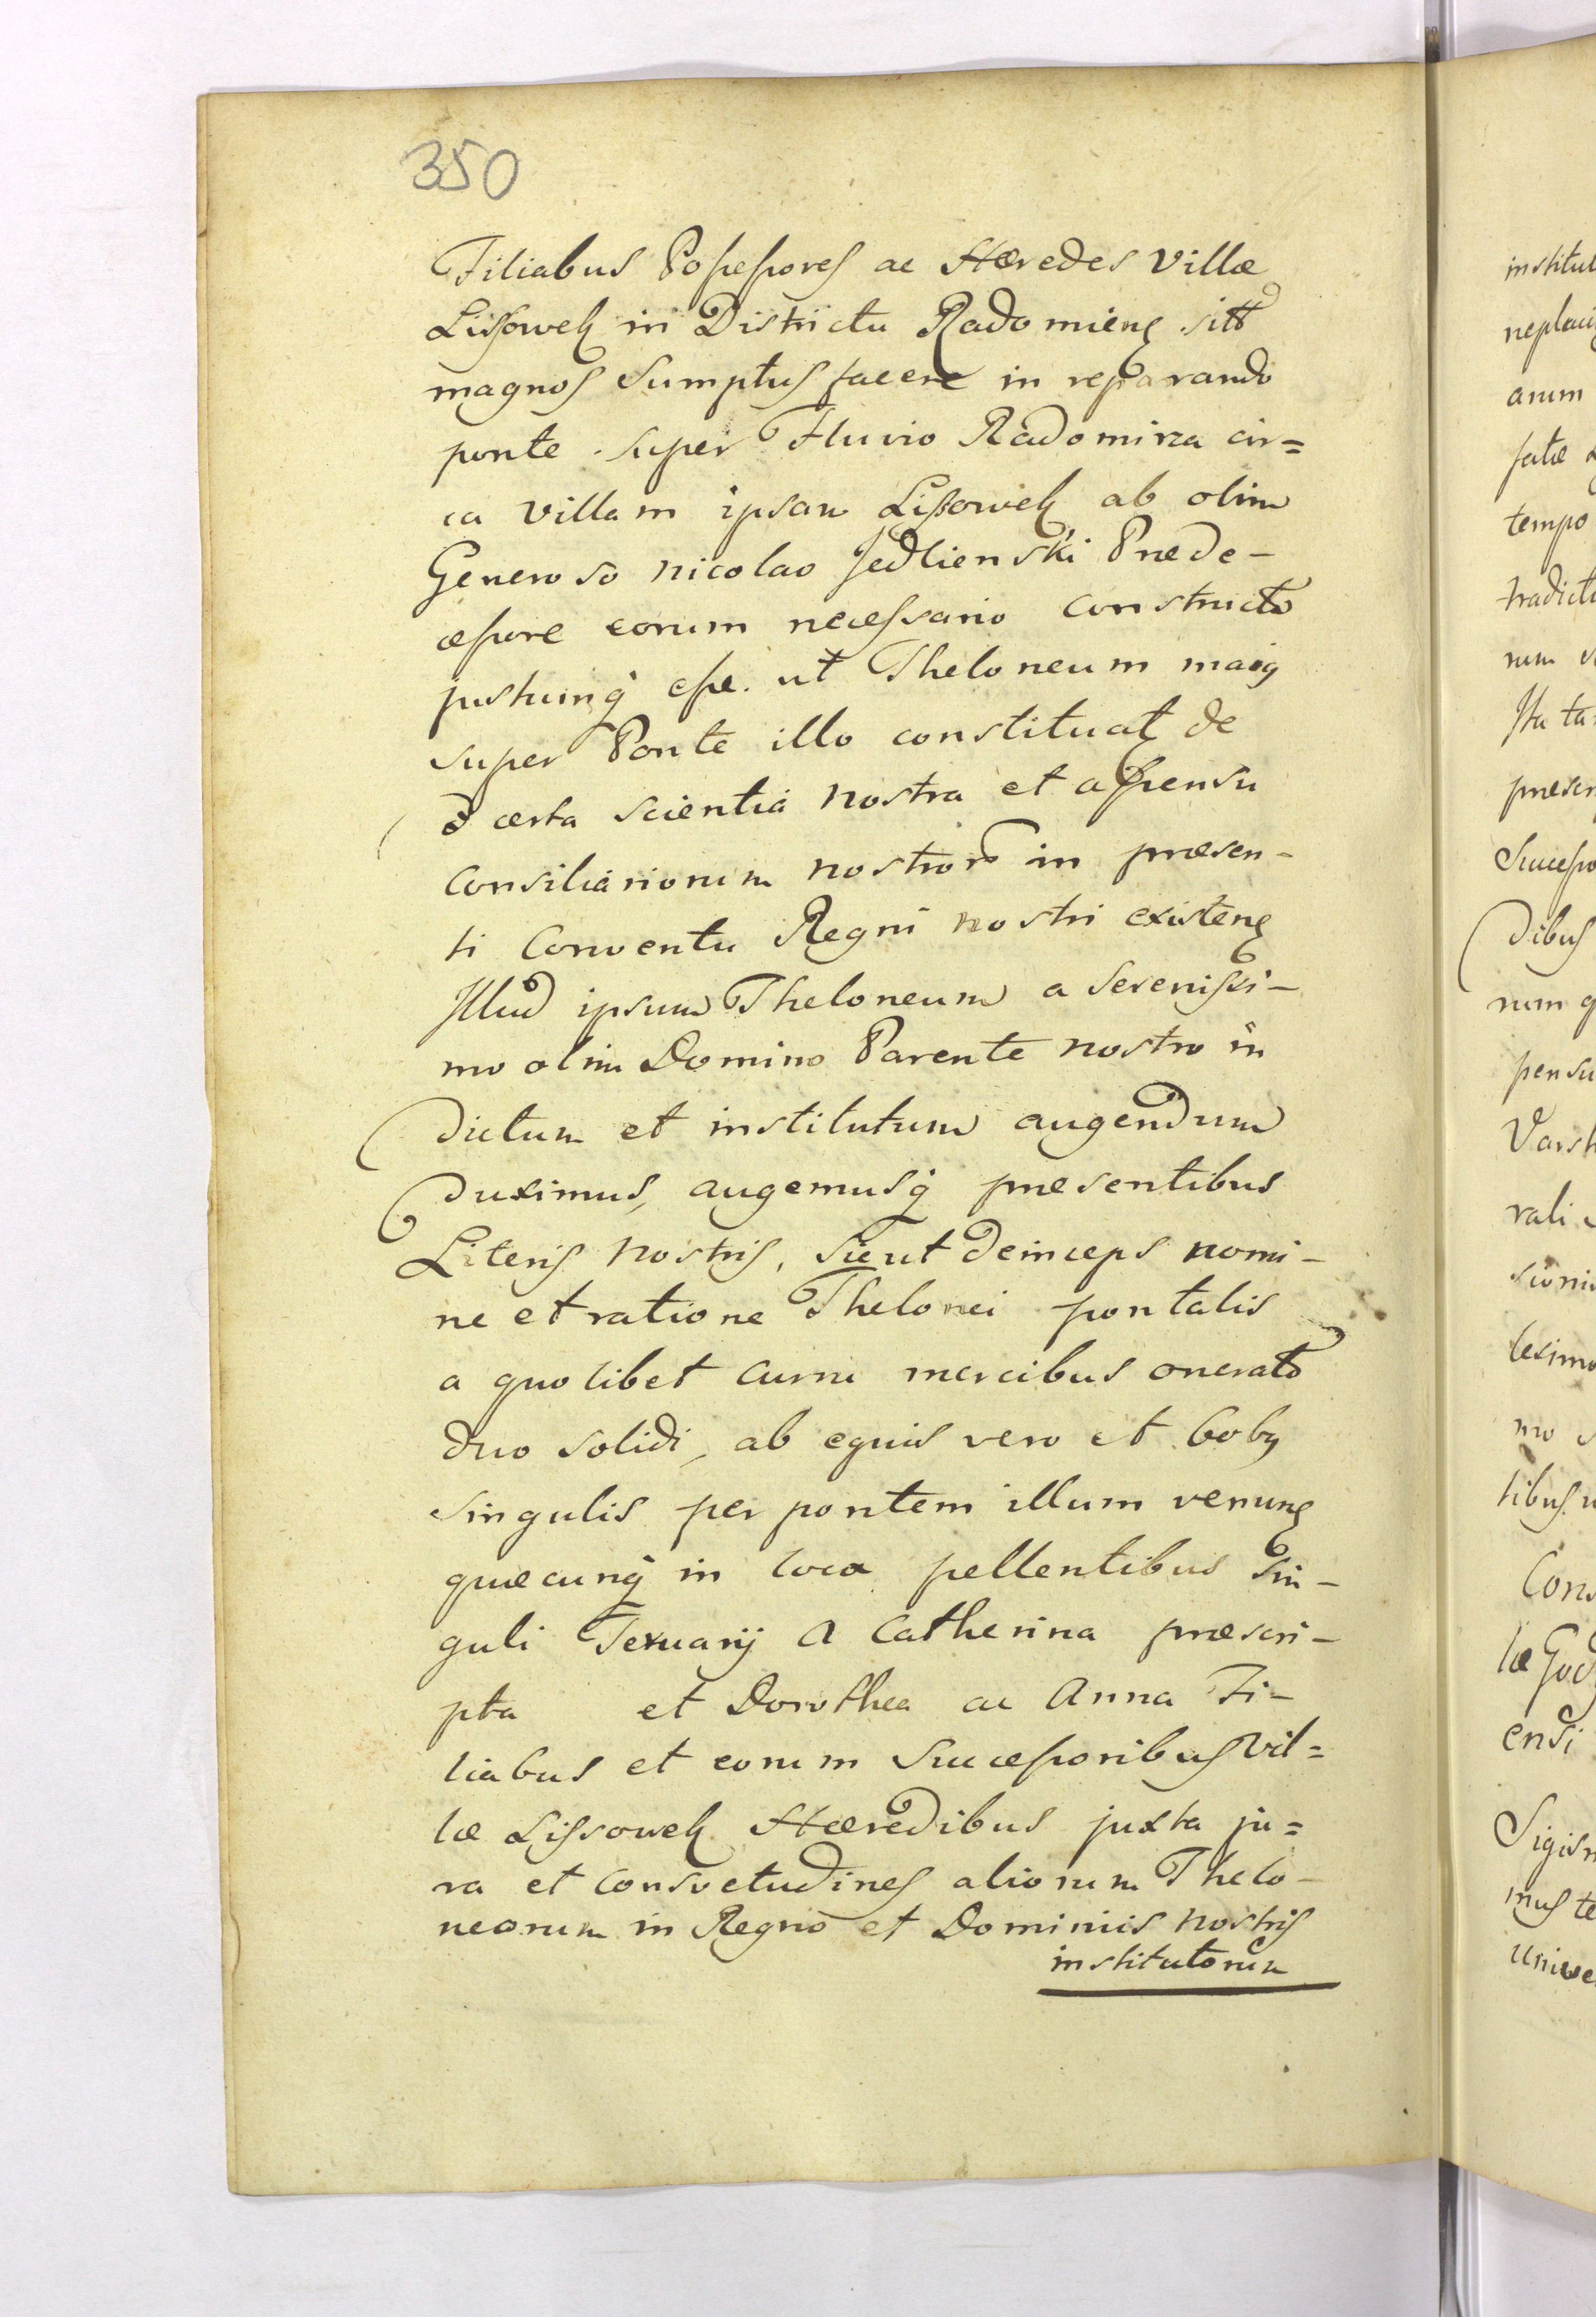 350
Filiabus Possessores ac Hæredes Villæ
Lissowek in Districtu Radomieng sitt
magnos Sumptus facere in reparando
ponte super Fluvio Radomirza cir=
ca Villam ipsam Lissowek ab olim
Generoso Nicolao Jedlienski Præde-
cessore eorum necessario constructo
justumq esse ut Theloneum maig
super Ponte illo constituat de
d certa scientia nostra et assensu
Consiliariorum nostror in præsen-
ti Conventu Regni nostri existeng
Illud ipsum Theloneum a Serenissi-
mo olim Domino Parente nostro in
dictum et institutum augendum
duximus, augemusq præsentibus
Literis nostris, sic ut deinceps nomi-
ne et ratione Thelonei pontalis
a quolibet curru mercibus onerato
duo solidi, ab equis vero et boby
singulis per pontem illum venung
quæcunq in loca pellentibus sin-
guli Ternarij a Catherina præscri-
pta et Dorothea ac Anna Fi-
liabus et eorum Successoribus Vil=
læ Lissowek Hæredibus juxta ju=
ra et consvetudines aliorum Thelo-
neorum in Regno et Dominiis nostris
institutorum
institut
neplaci
anim
fatæ
tempo
tradicti
rum
Ita ta
præscr
Successo
dibus
rum q
pensu
Varsh
rali
sioni
tesimo
mo
tibus
Cons
læ God
ensi
Sigism
mus te
unive